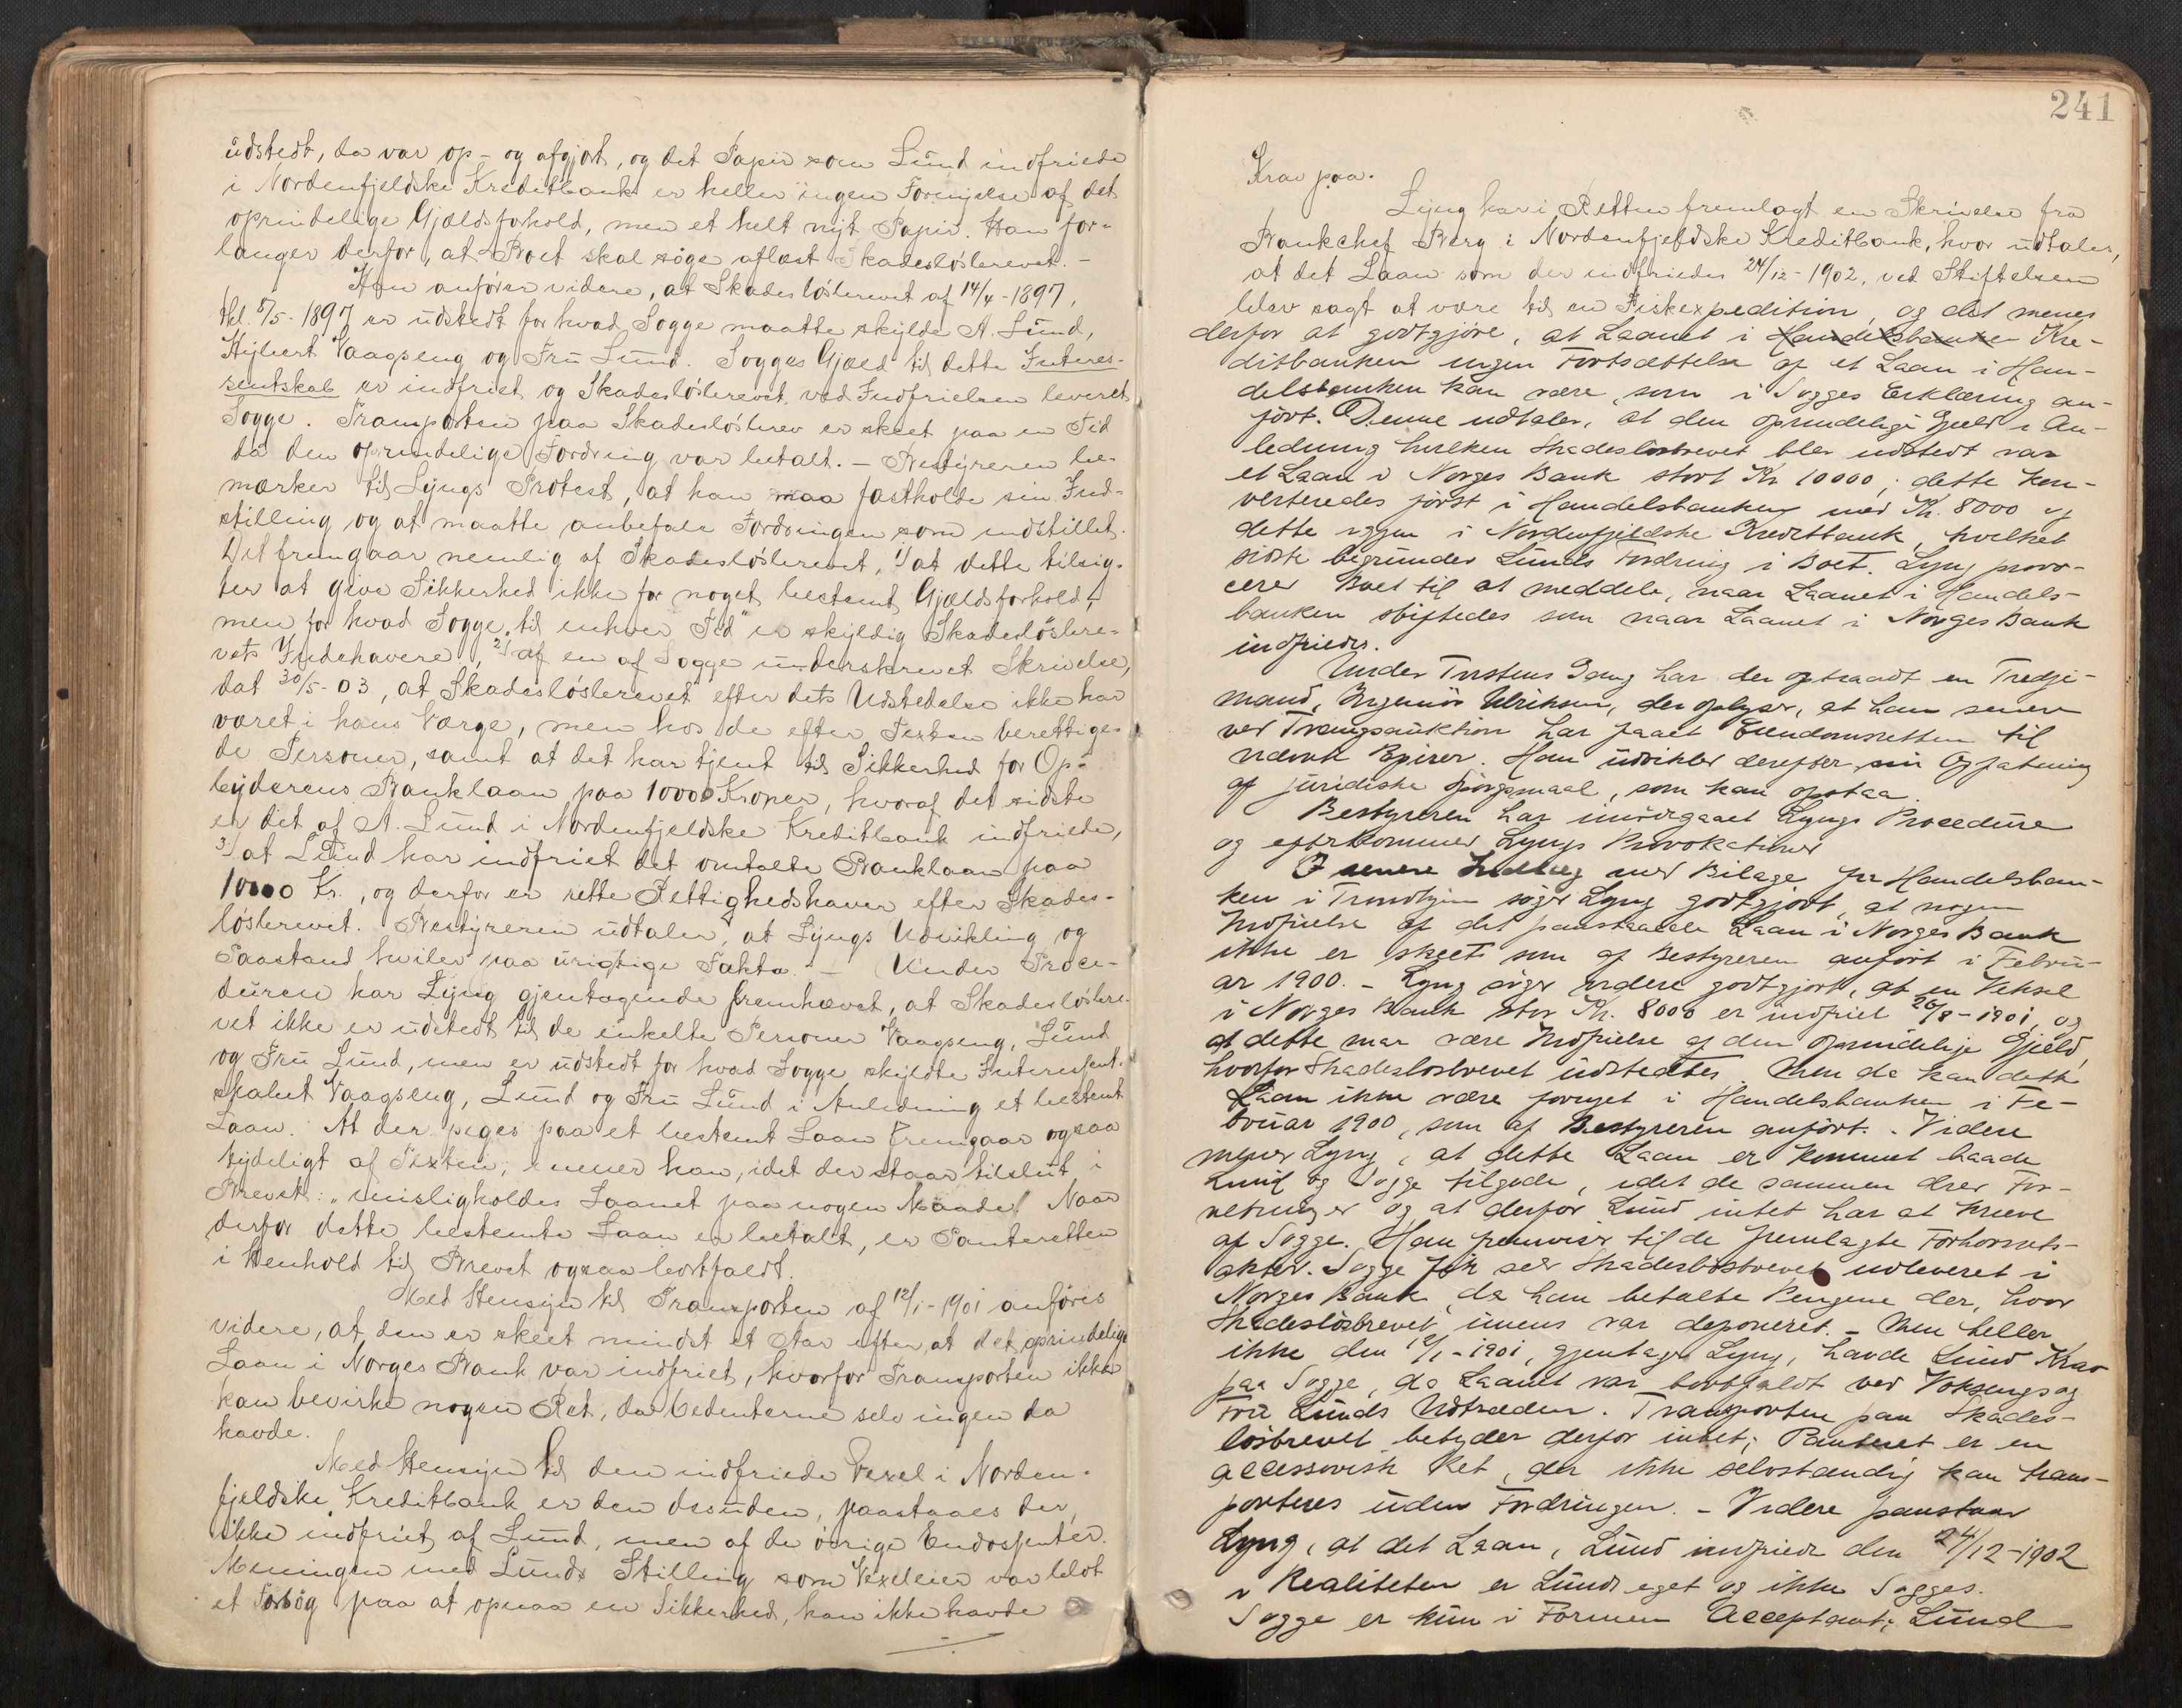 udstedt, da var op- og afgjort, og det Papir som Lund indfriede
i Nordenfjeldske Kreditbank er heller ingen Fornyelse af det
oprindelige Gjældsforhold, men et helt nyt Papir. Han for-
langer derfor, at Boet skal søge aflæst Skadesløsbrevet. -
Han anfører videre, at Skadesløsbrevet af 14/4 - 1897,
thl. 5/5 - 1897 er udstedt for hvad Sogge maatte skylde A. Lund,
Vaagseng og Fru Lund. Sogges Gjæld til dette Interes-
sentskab er indfriet og Skadesløsbrevet ved Indfrielsen leveret
Sogge. Transporten paa Skadesløsbrev er skeet paa en Tid
da den oprindelige Fordring var betalt. - Bestyreren be-
mærker til Lyngs Protest, at han maa fastholde sin Ind-
stilling og at maatte anbefale Fordringen som indstillet.
Det fremgaar nemlig af Skadesløsbrevet, 1) at dette tilsig-
ter at give Sikkerhed ikke for noget bestemt Gjældsforhold,
men for hvad Sogge "til enhver Tid" er skyldig Skadesløsbre-
vets Indehavere, 2) af en af Sogge underskrevet Skrivelse,
dat 30/5 - 03, at Skadesløsbrevet efter dets Udstedelse ikke har
været i hans Værge, men hos de efter Texten berettige-
de Personer, samt at det har tjent til Sikkerhed for Op-
byderens Banklaan paa 10000 Kroner, hvoraf det sidste
er det af A. Lund i Nordenfjeldske Kreditbank indfriede,
3) at Lund har indfriet det omtalte Banklaan paa
10000 Kr., og derfor er rette Rettighedshaver efter Skades-
løsbrevet. Bestyreren udtaler, at Lyngs Udvikling og
Paastand hviler paa urigtige Fakta. - Under Proce-
duren har Lyng gjentagende fremhævet, at Skadesløsbre-
vet ikke er udstedt til de enkelte Personer Vaagseng, Lund
og Fru Lund, men er udstedt for hvad Sogge skyldte Interessent-
skabet Vaagseng, Lund og Fru Lund i Anledning et bestemt
Laan. At der peges paa et bestemt Laan fremgaar ogsaa
tydeligt af Texten, mener han, idet der staar tilslut i
Brevet: "misligholdes Laanet paa nogen Maade" Naar
derfor dette bestemte Laan er betalt, er Panteretten
i Henhold til Brevet ogsaa bortfaldt.
Med Hensyn til Transporten af 12/1 - 1901 anføres
videre, at den er skeet mindst et Aar efter, at det oprindelige
Laan i Norges Bank var indfriet, hvorfor Transporten ikke
kan bevirke nogen Ret, da Cedenterne selv ingen da
havde.
Med Hensyn til den indfriede Vexel i Norden-
fjeldske Kreditbank er den desuden, paastaaes der,
ikke indfriet af Lund, men af de øvrige Endossenter.
Meningen med Lunds Stilling som Vexeleier var blot
et Forsøg paa at opnaa en Sikkerhed, han ikke havde
241
Krav paa.
Lyng har i Retten fremlagt en Skrivelse fra
Bankchef Berg i Nordenfjeldske Kreditbank, hvor udtales,
at det Laan som der indfriedes 24/12 - 1902, ved Stiftelsen
blev sagt at være til en Fiskexpedition, og det menes
derfor at godtgjøre, at Laanet i Handelsbanken Kre-
ditbanken ingen Fortsættelse af et Laan i Han-
delsbanken kan være, som i Sogges Erklæring an-
ført. Denne udtaler, at den oprindelige Gjæld i An-
ledning hvilken Skadesløsbrevet blev udstedt var
et Laan i Norges Bank stort Kr 10000; dette kon-
verteredes først i Handelsbanken med Kr. 8000 og
dette igjen i Nordenfjeldske Kreditbank, hvilket
sidste begrunder Lunds Fordring i Boet. Lyng provo-
cerer Boet til at meddele, naar Laanet i Handels-
banken stiftedes som naar Laanet i Norges Bank
indfriedes.
Under Tvistens Gang har der optraadt en Tredje-
mand, Ingeniør Ulriksen, der oplyser, at han senere
ved Tvangsauktion har faaet Eiendomsretten til
. Han udvikler derefter sin Opfatning
af juridiske Spørgsmaal, som kan opstaa.
Bestyreren har imødegaaet Lyngs Procedure
og efterkommer Lyngs Provokationer
I senere Indlæg med Bilage fra Handelsban-
ken i Trondhjem søger Lyng godtgjort, at nogen
Indfrielse af det paastaaede Laan i Norges Bank
ikke er skeet som af Bestyreren anført i Febru-
ar 1900. - Lyng søger videre godtgjort, at en Veksel
i Norges Bank stor Kr. 8000 er indfriet 26/8 - 1901, og
at dette maa være Indfrielse af den oprindelige Gjæld,
hvorfor Skadesløsbrevet udstedtes. Men da kan dette
Laan ikke være fornyet i Handelsbanken i Fe-
bruar 1900, som af Bestyreren anført. - Videre
mener Lyng, at dette Laan er kommet baade
Lund og Sogge tilgode, idet de sammen drev For-
retninger og at derfor Lund intet har at kræve
af Sogge. Han henviser til de fremlagte Forhørsak-
akter. Sogge fik selv Skadesløsbrevet udleveret i
Norges Bank, da han betalte Pengene der, hvor
Skadesløsbrevet imens var deponeret. - Men heller
ikke den 12/1 - 1901, gjentager Lyng, havde Lund Krav
paa Sogge, da Laanet var bortfaldt ved Vaagsengs og
Fru Lunds Udtræden. Transporten paa Skades-
løsbrevet betyder derfor intet; Panteret er en
accessorisk Ret, der ikke selvstændig kan trans-
porteres uden Fordringen. - Videre paastaar
Lyng, at det Laan, Lund indfriede den 24/12 - 1902
i Realiteten er Lunds eget og ikke Sogges.
Sogge er kun i Formen Acceptant; Lund